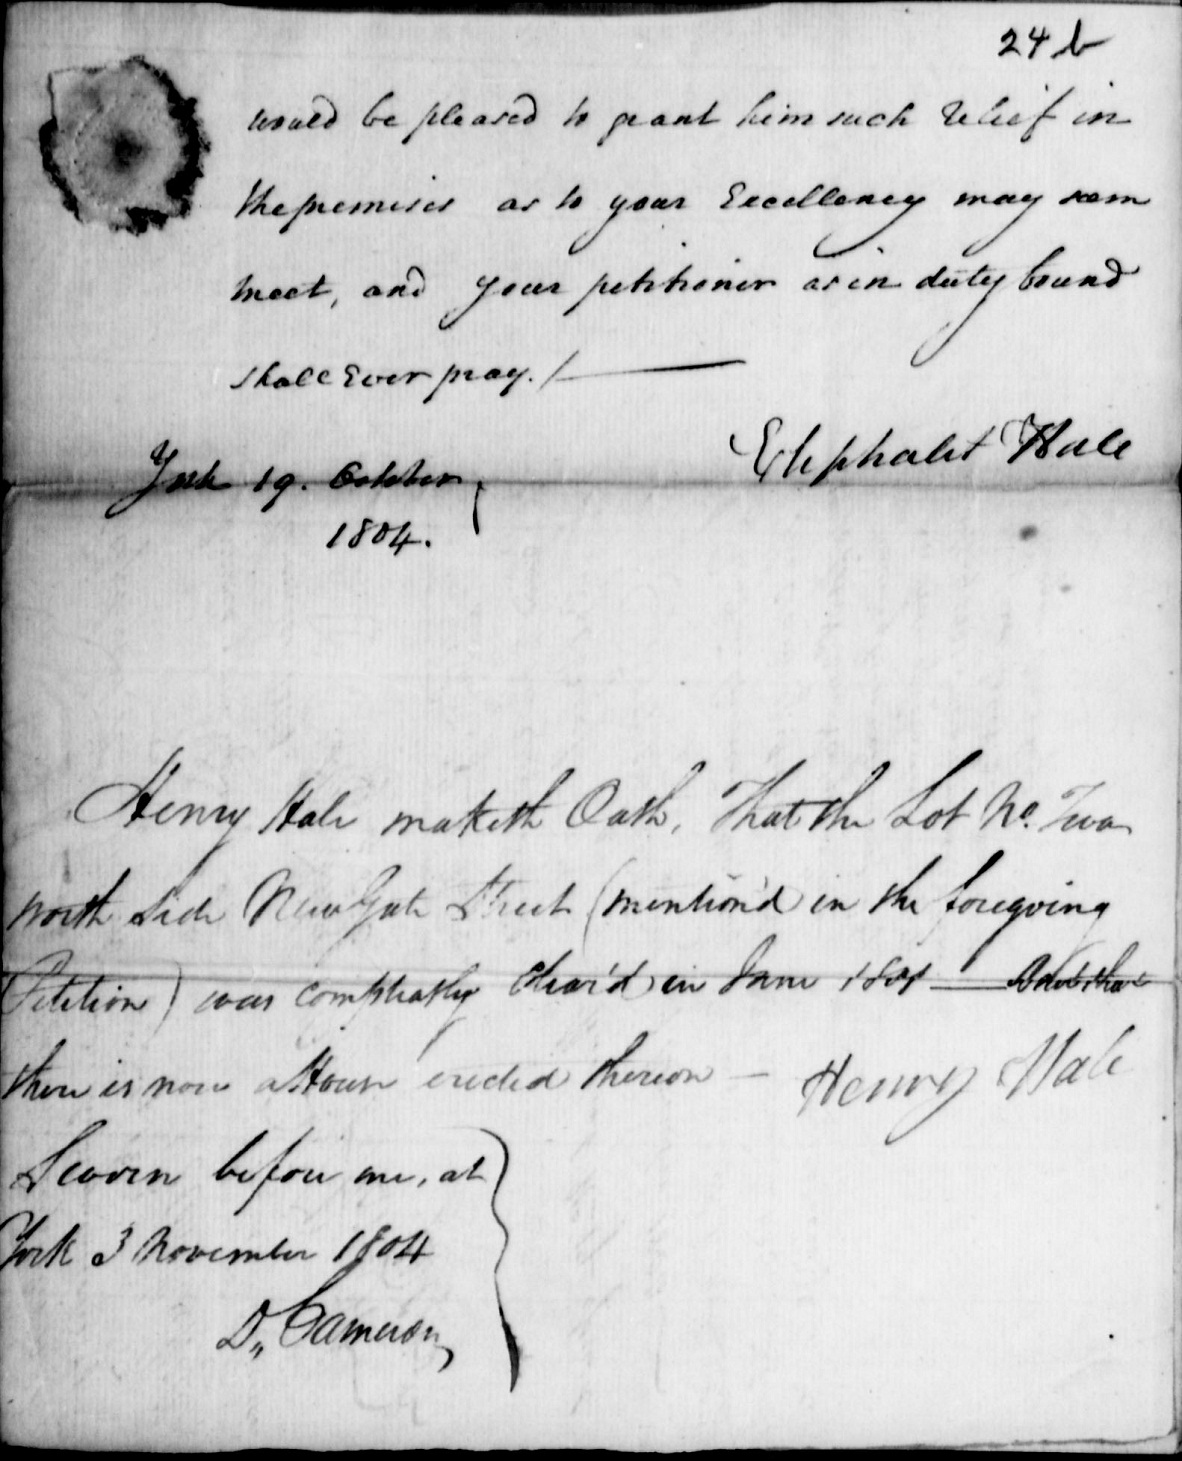 24 b
would be pleased to grant him such relief in
the premises as to your Excellency may seem
meet, and your petitioner as in duty bound
shall Ever pray. /
Eliphalet Hale
York 19. October
1804.
Henry Hale maketh Oath, That the Lot No. Two
north side New Gate Street (mention'd in the foregoing
Petition) was compleatly Clear'd in June 1801 And that
there is now a House erected thereon — Henry Hale
Sworn before me, at
York 3 November 1804
D,, Cameron